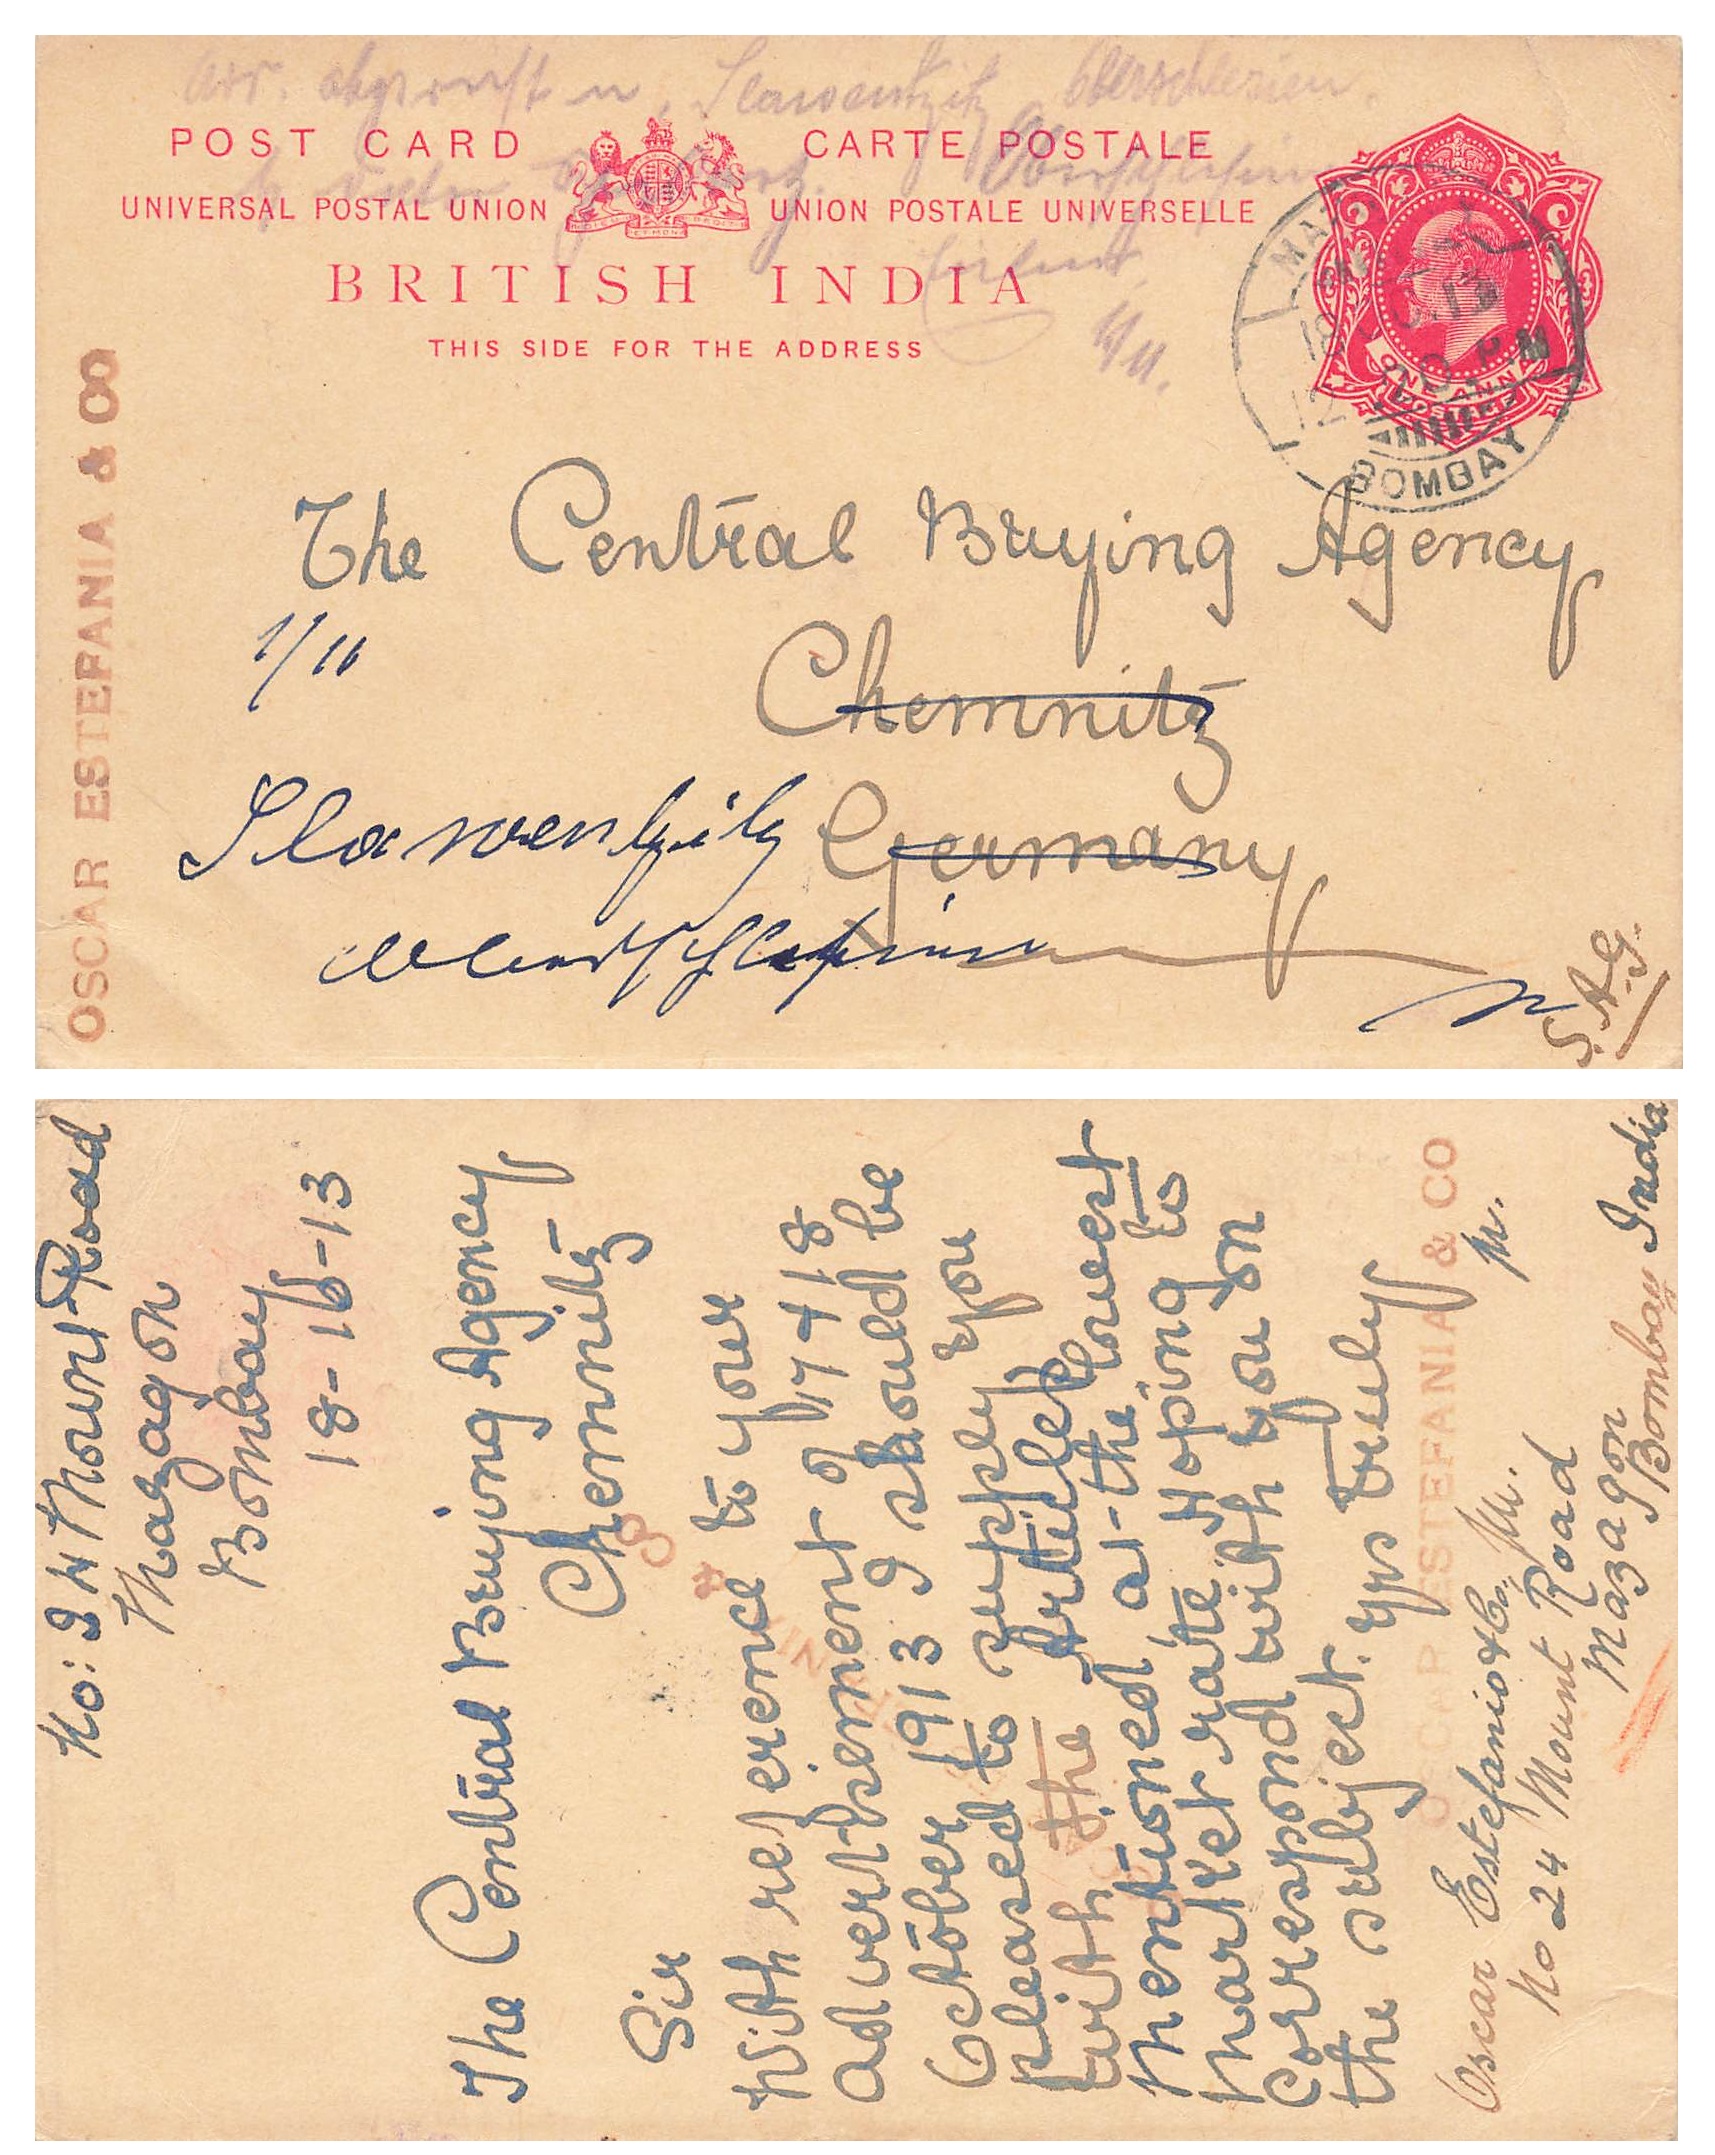 Slawentzitz Oberschlesien.
POST CARD CARTE POSTALE
UNIVERSAL POSTAL UNION UNION POSTALE UNIVERSELLE
BRITISH INDIA
THIS SIDE FOR THE ADDRESS
ONE ANNA
BOMBAY
OSCAR ESTEFANIA & CO
The Central Buying Agency
1/11
Chemnitz
Slawentzitz Germany
Oberschlesien
S.A.G.
No: 24 Mount Road
Mazagon
Bombay
18-10-13
The Central Buying Agency
Chemnitz
Sir
With reference to your
advertisement of 17418
October 1913 I should be
pleased to supply you
with the Articles
mentioned at the lowest
market rate Hoping to
correspond with you on
the subject. Yrs truly
OSCAR ESTEFANIA & CO
Oscar Estefanio & Co. M.
No 24 Mount Road
Mazagon
Bombay India